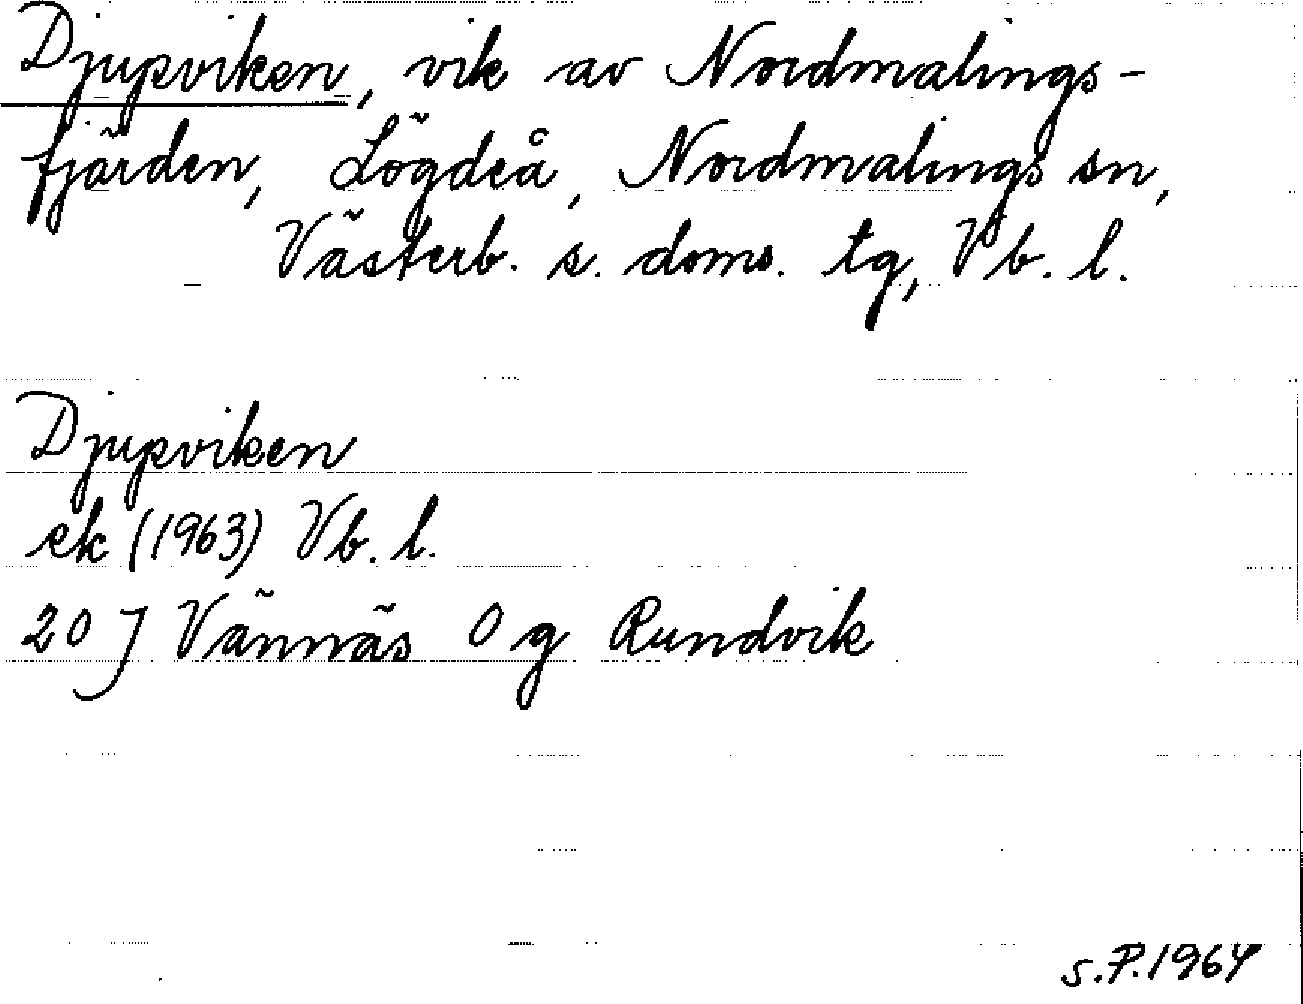 Djupviken, vik av Nordmalings-
fjärden, Lögdeå, Nordmalings sn,
Västerb. s. doms. tg, Vb. l.
Djupviken
ek (1963) Vb. l.
20 J Vännäs 0 g Rundvik
S.P.1964